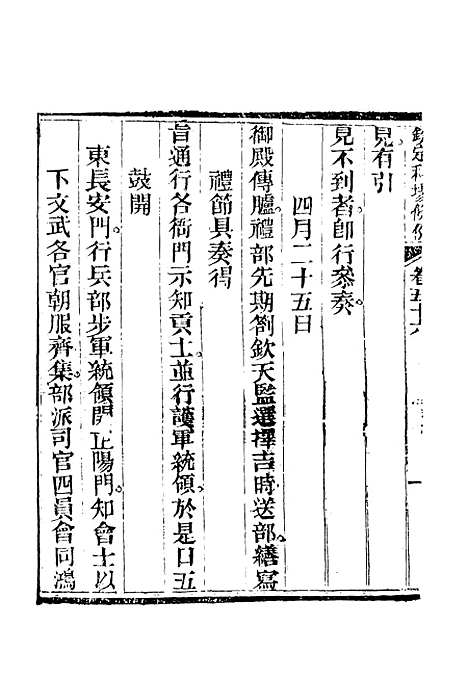 欽定科場條例 卷五十六
見有引
見不到者卽行參奏
四月二十五日
御殿傳臚禮部先期劄欽天監選擇吉時送部繕寫
禮節具奏得
旨通行各衙門示知貢士並行護軍統領於是日五
鼓開
東長安門行兵部步軍統領開正陽門知會士以
下文武各官朝服齊集部派司官四員會同鴻